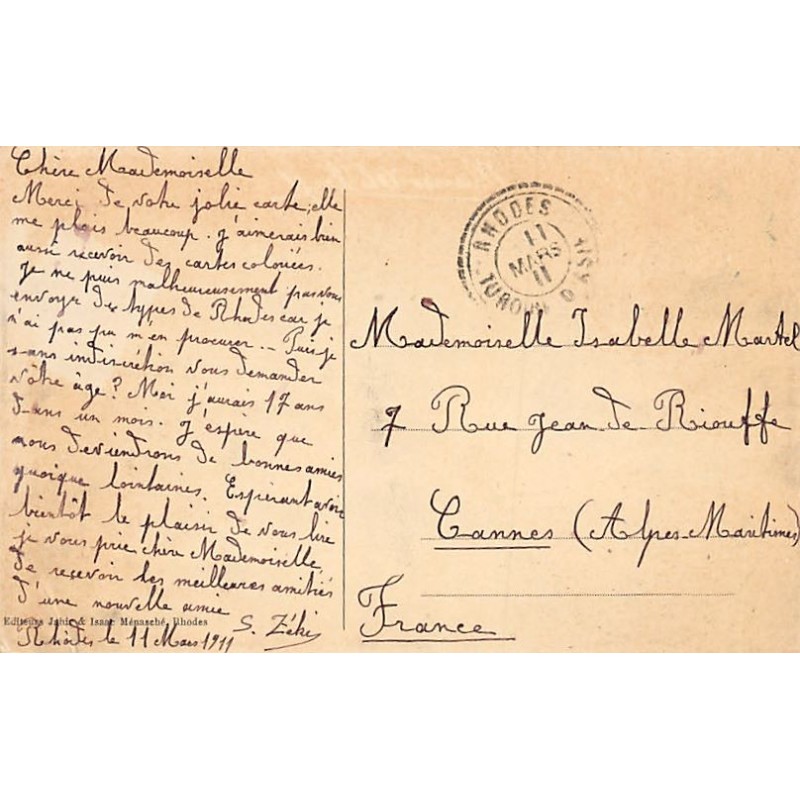 Chère Mademoiselle
Merci de votre jolie carte, elle
me plais beaucoup. J'aimerais bien
aussi recevoir des cartes coloriées.
Je ne puis malheureusement pas vous
envoyer des types de Rhodes car je
n'ai pas pu m'en procurer. — Puis-je
sans indiscrétion vous demander
vôtre âge? Moi j'aurais 17 ans
dans un mois. J'espère que
nous deviendrons de bonnes amies
quoique lointaines. Espérant avoir
bientôt le plaisir de vous lire
je vous prie chère Mademoiselle,
de recevoir les meilleures amitiés
d'une nouvelle amie
S. Zéki
Editeurs Jahiel & Isaac Ménasché, Rhodes
Rhodes le 11 Mars 1911
RHODES
11
MARS
11
Mademoiselle Isabelle Martel
7 Rue Jean de Riouffe
Cannes (Alpes-Maritimes)
France